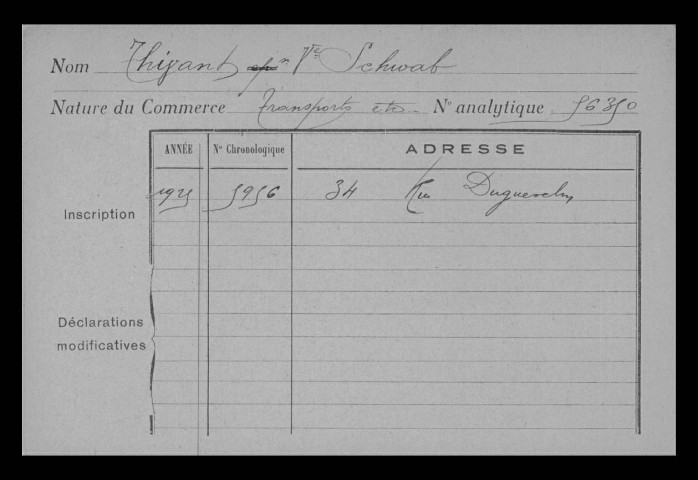 Nom Thizant Vve Schwab
Nature du Commerce Transports etc. N° analytique 56350
ANNÉE N° Chronologique ADRESSE
Inscription 1925 5956 34 Rue Duguesclin
Déclarations
modificatives